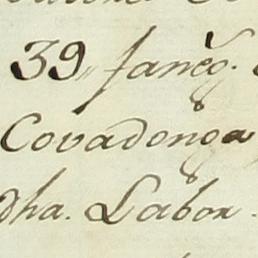 39, faneg.
Covadonga
dha. Labor.